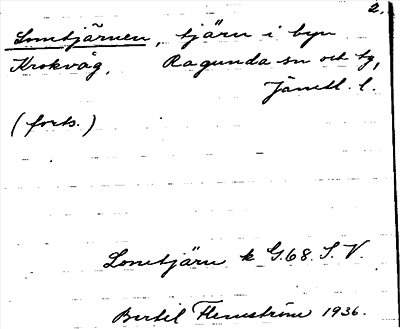 2.
Lomtjärnen, tjärn i byn
Krokvåg, Ragunda sn och tg,
Jämtl. l.
(forts.)
Lomtjärn k G.68. S. V.
Bertil Flemström 1936.